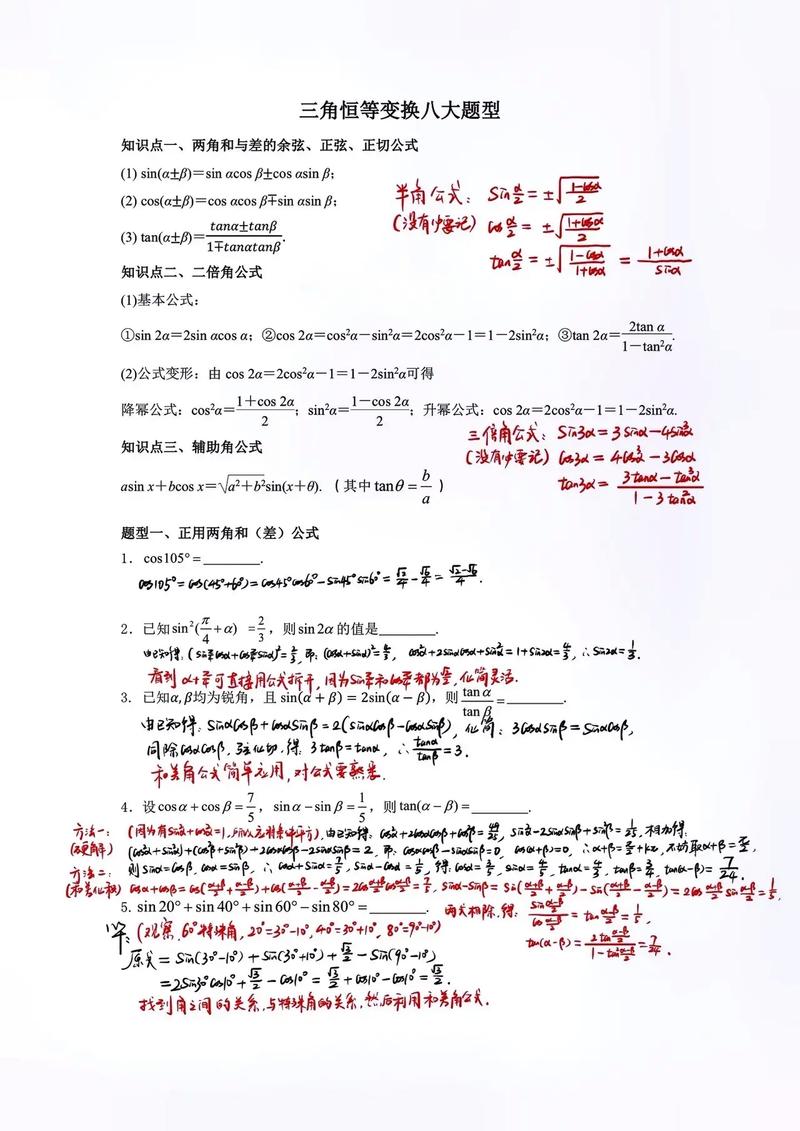 三角恒等变换八大题型
知识点一、两角和与差的余弦、正弦、正切公式
(1) sin(α±β)=sin αcos β±cos αsin β;
(2) cos(α±β)=cos αcos β∓sin αsin β;
(3) tan(α±β)=\frac{tanα±tanβ}{1∓tanαtanβ}.
半角公式: Sin\frac{α}{2} = ±\sqrt{\frac{1-cosα}{2}}
(没有少要记) cos\frac{α}{2} = ±\sqrt{\frac{1+cosα}{2}}
tan\frac{α}{2} = ±\sqrt{\frac{1-cosα}{1+cosα}} = \frac{1+cosα}{sinα}
知识点二、二倍角公式
(1)基本公式:
①sin 2α=2sin αcos α; ②cos 2α=cos²α-sin²α=2cos²α-1=1-2sin²α; ③tan 2α=\frac{2tan α}{1-tan²α}.
(2)公式变形: 由 cos 2α=2cos²α-1=1-2sin²α可得
降幂公式: cos²α=\frac{1+cos 2α}{2}; sin²α=\frac{1-cos 2α}{2}; 升幂公式: cos 2α=2cos²α-1=1-2sin²α.
三倍角公式: Sin3α = 3Sinα-4Sin³α
(没有少要记) cos3α = 4cos³α-3cosα
tan3α = \frac{3tanα-tan³α}{1-3tan²α}
知识点三、辅助角公式
asin x+bcos x=\sqrt{a²+b²}sin(x+θ). (其中 tanθ=\frac{b}{a})
题型一、正用两角和(差)公式
1. cos105°=________.
cos105°=cos(45°+60°)=cos45°cos60°-sin45°sin60°=\frac{√2}{4}-\frac{√6}{4}=\frac{√2-√6}{4}.
2. 已知 sin²(\frac{π}{4}+α) =\frac{2}{3}, 则 sin 2α 的值是_______.
由已知得: (sin\frac{π}{4}cosα+cos\frac{π}{4}sinα)²=\frac{2}{3}, 即: (cosα+sinα)²=\frac{4}{3}, cos²α+2sinαcosα+sin²α=1+sin2α=\frac{4}{3}, ∴sin2α=\frac{1}{3}.
看到α+\frac{π}{4}可直接用公式拆开, 因为sin\frac{π}{4}和cos\frac{π}{4}都为\frac{√2}{2}, 化简灵活.
3. 已知α,β均为锐角, 且 sin(α+β)=2sin(α-β), 则\frac{tan α}{tan β}=________.
由已知得: Sinαcosβ+cosαSinβ=2(sinαcosβ-cosαsinβ), 化简: 3cosαsinβ=sinαcosβ,
同除cosαcosβ, 弦化切, 得: 3tanβ=tanα, ∴\frac{tanα}{tanβ}=3.
和差角公式简单应用, 对公式要熟悉.
4. 设 cos α+cos β=\frac{7}{5}, sin α-sin β=\frac{1}{5}, 则 tan(α-β)=________.
方法一: (因为有sin²α+cos²α=1, 所以先对条件平方), 由已知得: cos²α+2cosαcosβ+cos²β=\frac{49}{25}, sin²α-2sinαsinβ+sin²β=\frac{1}{25}, 相加得:
(硬解) (cos²α+sin²α)+(cos²β+sin²β)+2cosαcosβ-2sinαsinβ=2, 即: cosαcosβ-sinαsinβ=0, cos(α+β)=0, ∴α+β=\frac{π}{2}+kπ, 不妨取α+β=\frac{π}{2},
则 sinα=cosβ, cosα=sinβ, ∴cosα+sinα=\frac{7}{5}, sinα-cosα=\frac{1}{5}, 得: cosα=\frac{3}{5}, sinα=\frac{4}{5}, tanα=\frac{4}{3}, tanβ=\frac{3}{4}, tan(α-β)=\frac{7}{24}.
方法二:
(和差化积) cosα+cosβ=cos(\frac{α+β}{2}+\frac{α-β}{2})+cos(\frac{α+β}{2}-\frac{α-β}{2})=2cos\frac{α+β}{2}cos\frac{α-β}{2}=\frac{7}{5}, sinα-sinβ=sin(\frac{α+β}{2}+\frac{α-β}{2})-sin(\frac{α+β}{2}-\frac{α-β}{2})=2cos\frac{α+β}{2}sin\frac{α-β}{2}=\frac{1}{5},
两式相除, 得: \frac{sin\frac{α-β}{2}}{cos\frac{α-β}{2}}=tan\frac{α-β}{2}=\frac{1}{7},
tan(α-β)=\frac{2tan\frac{α-β}{2}}{1-tan²\frac{α-β}{2}}=\frac{7}{24}.
5. sin 20°+sin 40°+sin 60°-sin 80°=________.
(观察, 60°特殊角, 20°=30°-10°, 40°=30°+10°, 80°=90°-10°)
原式=Sin(30°-10°)+Sin(30°+10°)+\frac{√3}{2}-Sin(90°-10°)
=2Sin30°cos10°+\frac{√3}{2}-cos10°=\frac{√3}{2}+cos10°-cos10°=\frac{√3}{2}.
找到角之间的关系,与特殊角的关系,然后利用和差角公式.